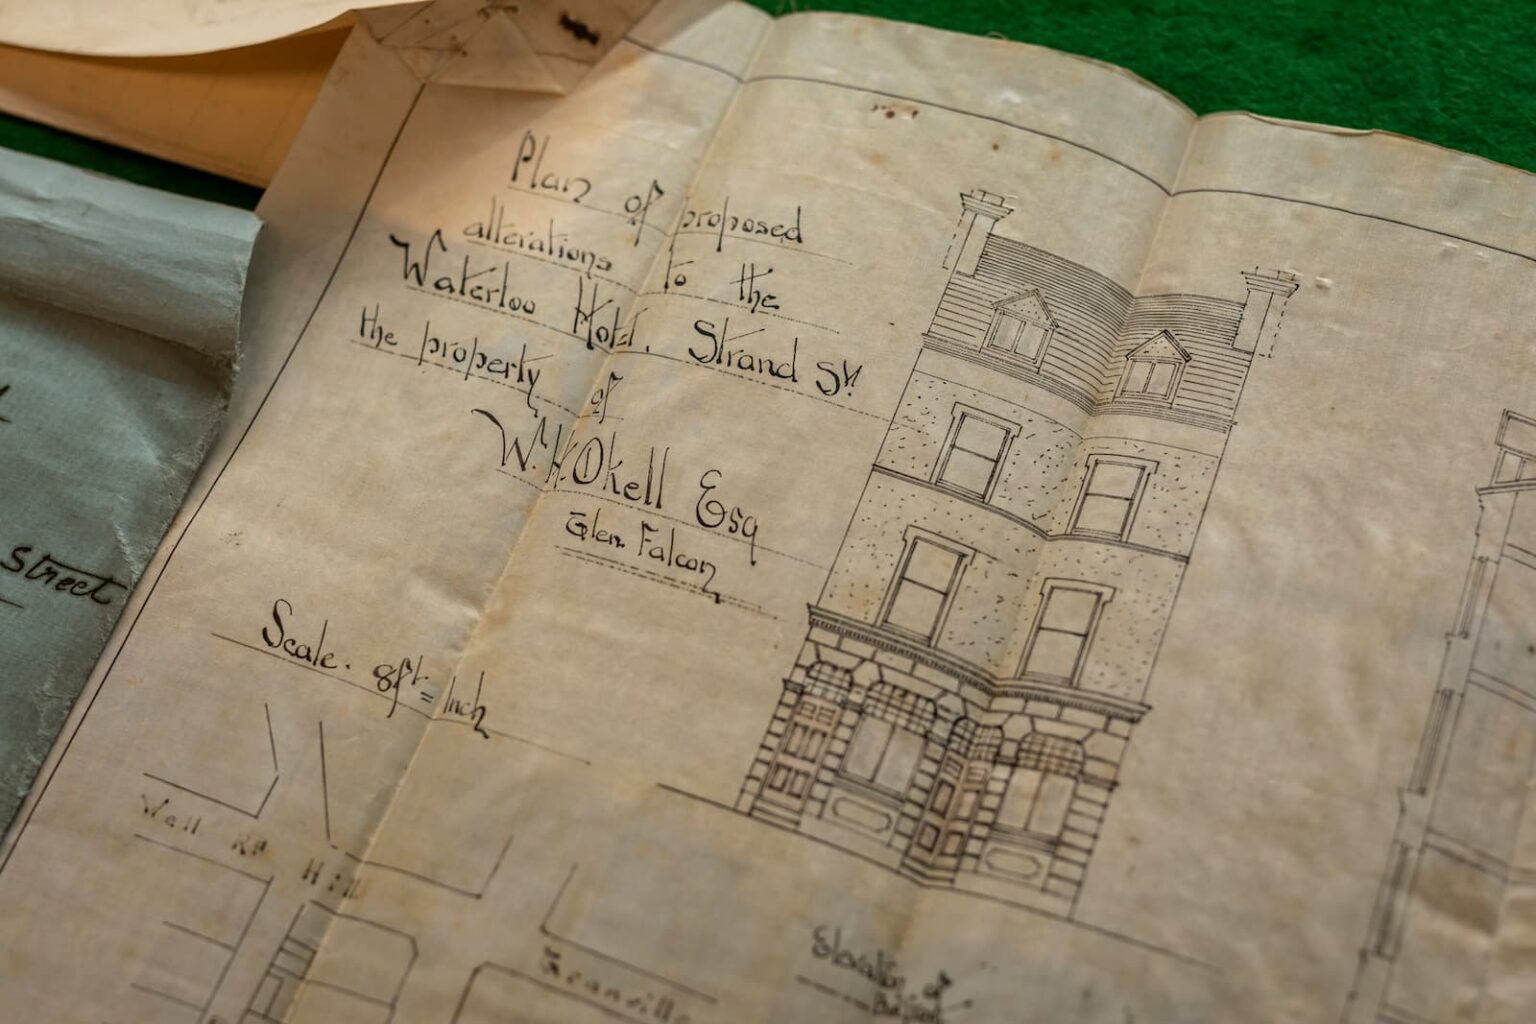 Plan of proposed
alterations to the
Waterloo Hotel. Strand St.
the property of
W. H. Okell Esq
Glen Falcon
Scale. 8ft = Inch
Well Rd
Hill
Granville
Elevation of
Street